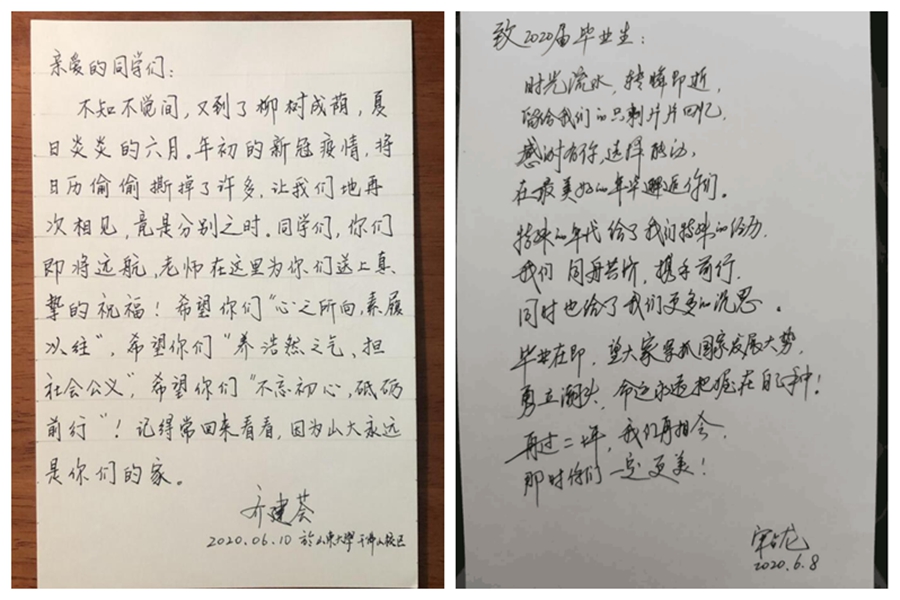 亲爱的同学们：
不知不觉间，又到了柳树成荫，夏
日炎炎的六月。年初的新冠疫情，将
日历偷偷撕掉了许多，让我们地再
次相见，竟是分别之时。同学们，你们
即将远航，老师在这里为你们送上真
挚的祝福！希望你们“心之所向，素履
以往”，希望你们“养浩然之气、担
社会公义”，希望你们“不忘初心，砥砺
前行”！记得常回来看看，因为山大永远
是你们的家。
齐建荟
2020.06.10 於山东大学千佛山校区
致2020届毕业生：
时光流水，转瞬即逝，
留给我们的只剩片片回忆，
感谢有你，选择
在最美好的年华邂逅你们。
特殊的年代给了我们特殊的经历，
我们同舟共济，携手前行，
同时也给了我们更多的沉思。
毕业在即，望大家紧抓国家发展大势，
勇立潮头，命运永远把握在自己手中！
再过二十年，我们再相会，
那时你们一定更美！
龙
2020.6.8